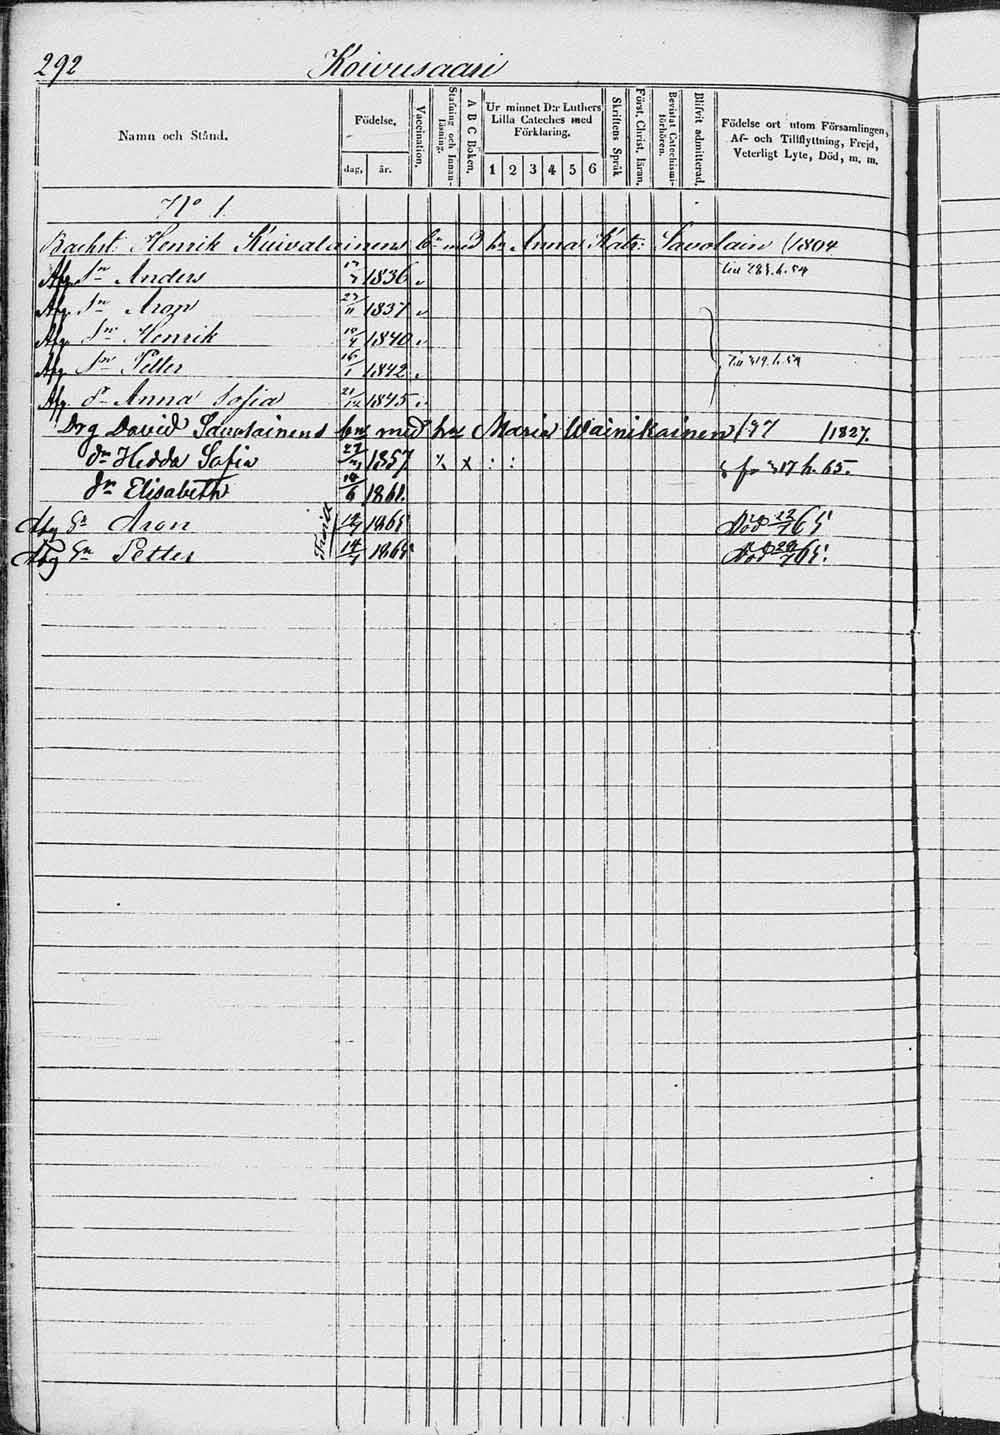 292 Koivusaari
Namn och Stånd.
Födelse,
dag, år.
Vaccination.
Stafning och Innan-läsning.
A B C Boken.
Ur minnet D:r Luthers
Lilla Cateches med
Förklaring.
1 2 3 4 5 6
Skriftens Språk
Först. Christ. läran.
Bevistat Catechismi-förhören.
Blifvit admitterad.
Födelse ort utom Församlingen,
Af- och Tillflyttning, Frejd,
Veterligt Lyte, Död, m. m.
No 1.
Backst: Henrik Kuivalainens bn med hu Anna Katr: Savolain /1804
Afg. Sn Anders 1836
Afg. Sn Aron 23/11 1837
Afg. Sn Henrik 1840
Afg. Sn Petter 16/1 1842
Afg. dr Anna Sofia 21/12 1845
Drg David Savolainens bn med hu Maria Wäinikainen /97 /1827.
dr Hedda Sofia 1857 x : : fr 317 h. 65.
dr Elisabeth 1861.
Afg Sn Aron 1865 Död 65
Afg Sn Petter 1865 Död 65.